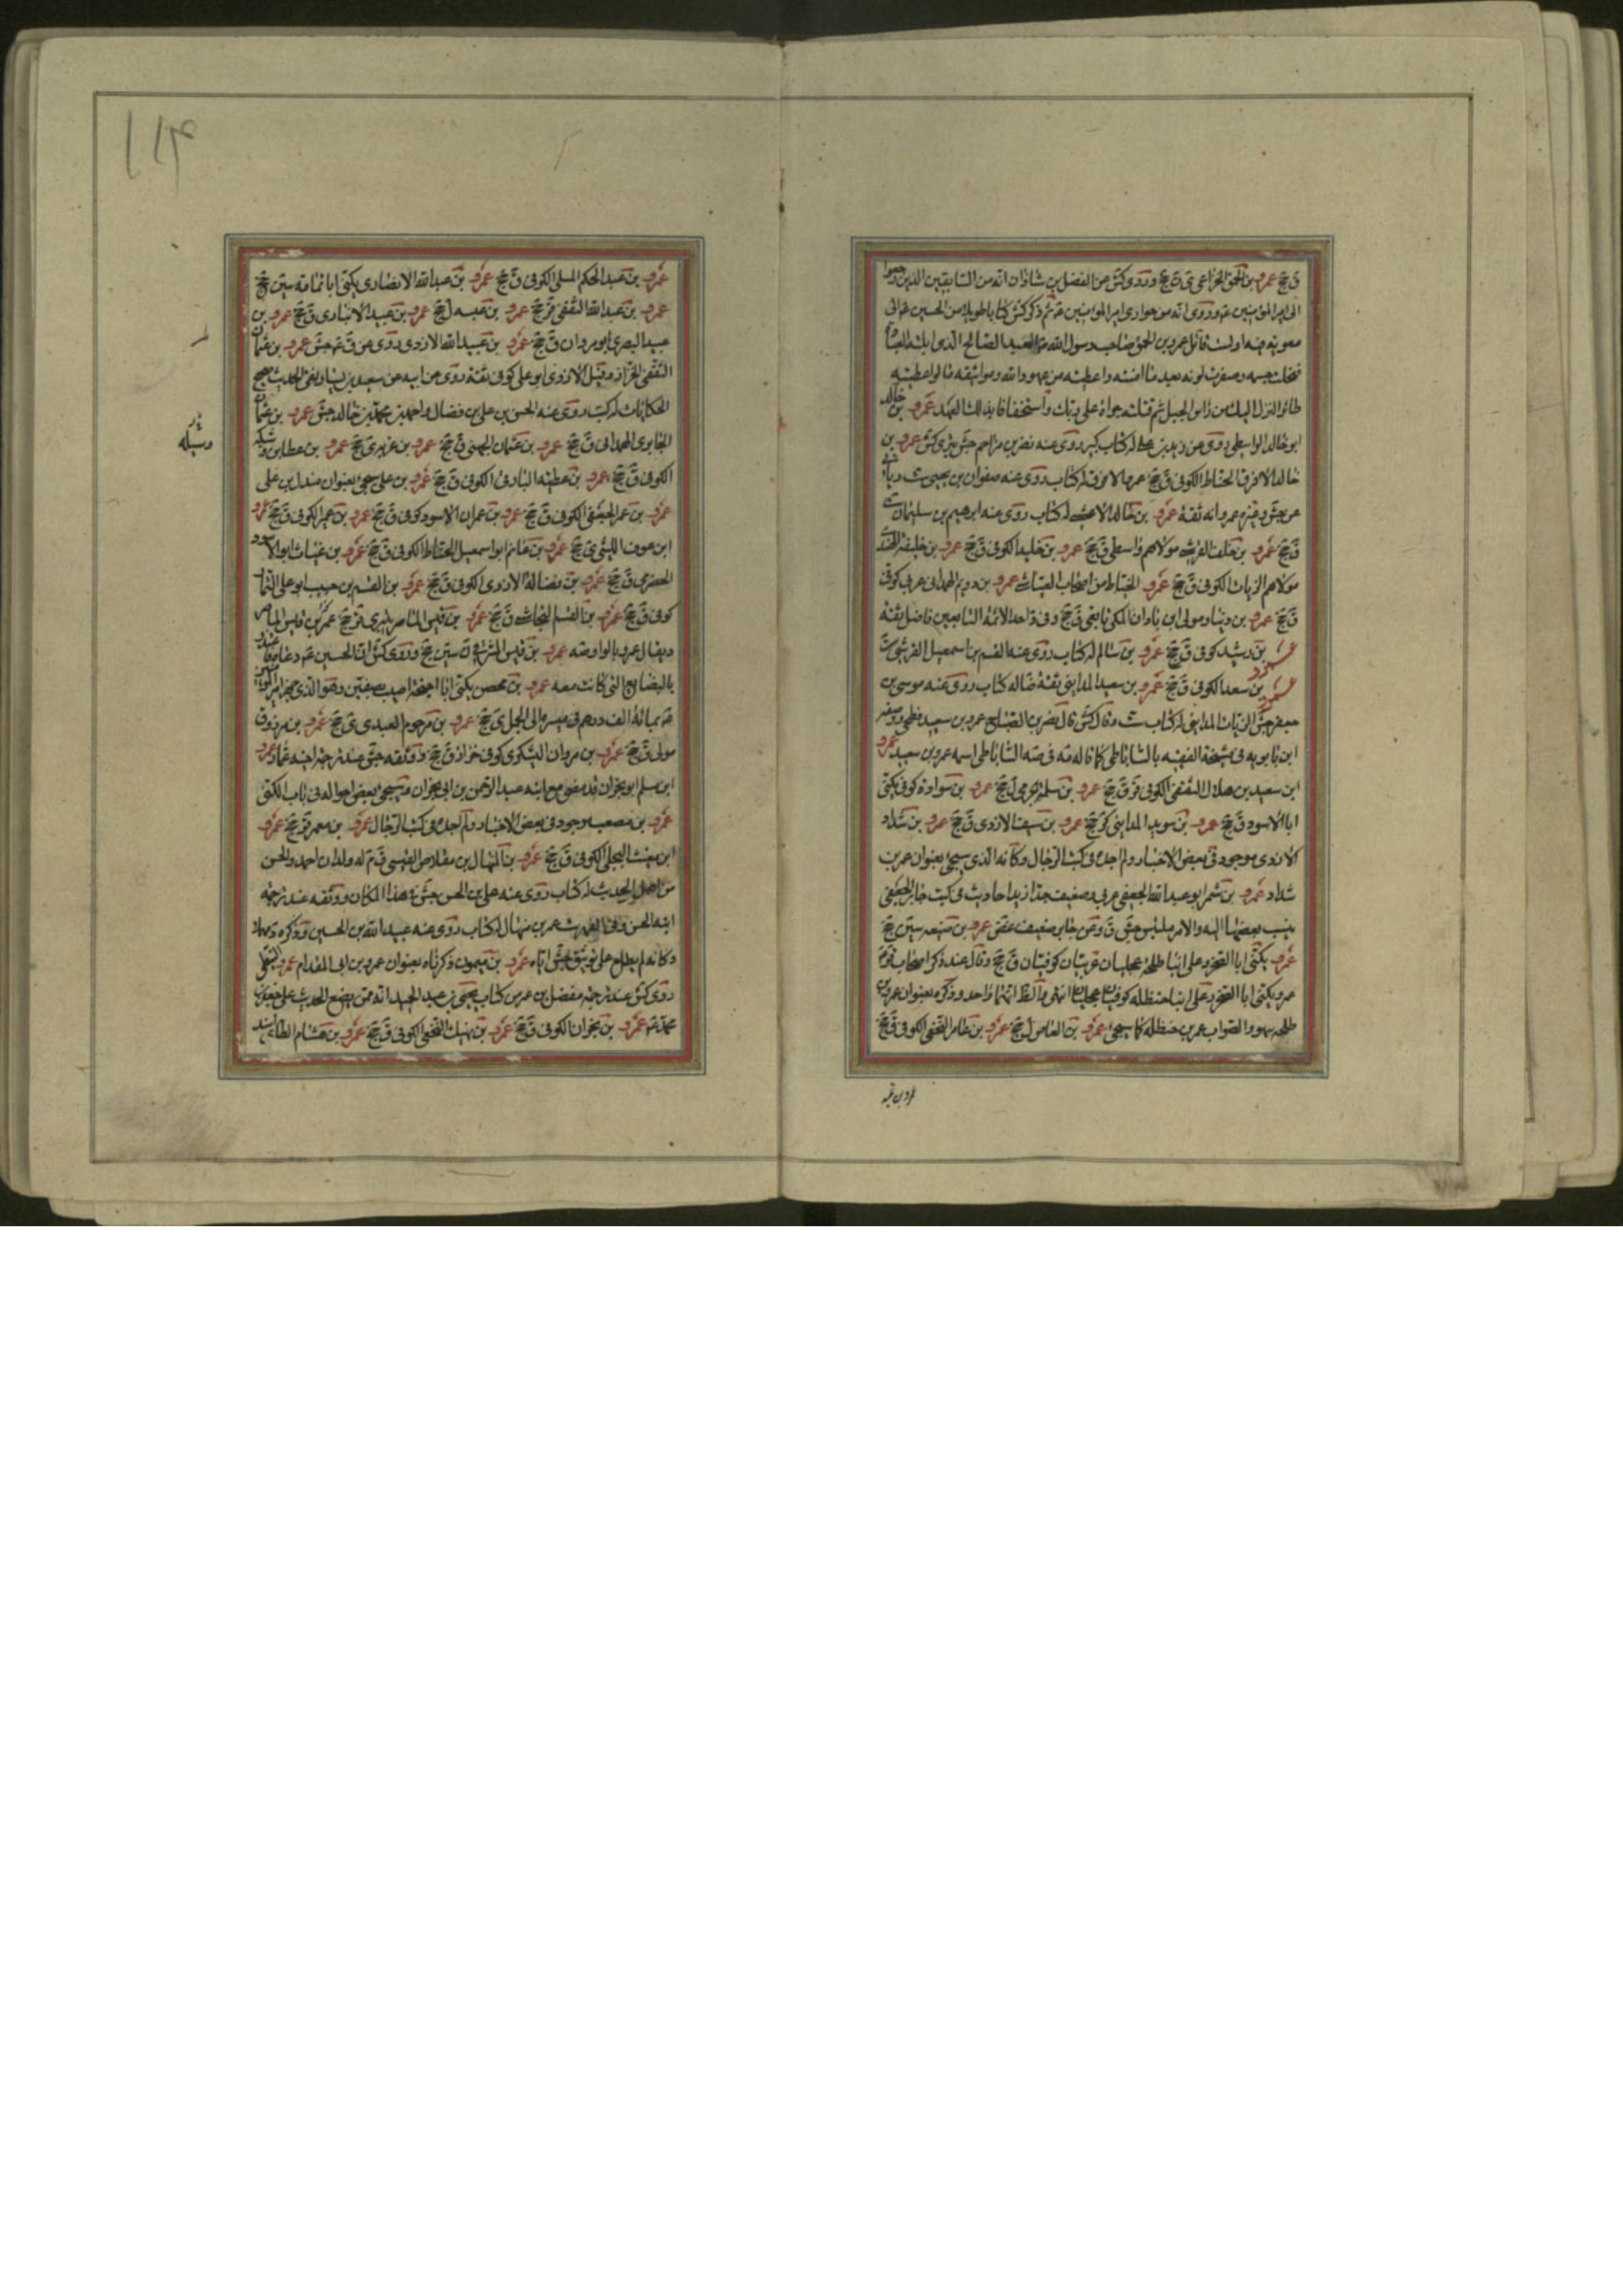 ق جخ عمرو بن الحمق الخزاعى ى ن جخ وروى كش عن الفضل بن شاذان انه من السابقين الذين رجعوا
الى امير المؤمنين ع وروى انه من حوارى امير المؤمنين ع ثم ذكر كش كتابا طويلا من الحسين ع الى
معوية منه اولست قاتل عمرو بن الحمق صاحب رسول الله العبد الصالح الذى ابلته العبادة
فنحلت جسمه وصفرت لونه بعد ما امنته واعطيته من عهود الله ومواثيقه ما لو اعطيته
طائرا لنزل اليك من راس الجبل ثم قتلته جراة على ربك واستخفافا بذلك العهد عمرو بن خالد
ابو خالد الواسطى روى عن زيد بن على له كتاب كبير روى عنه نصر بن مزاحم جش بترى كش عمرو بن
خالد الافرق الحناط الكوفى ق جخ عمر الافرق له كتاب روى عنه صفوان بن يحيى ست
عن جش وغيره عمر وانه ثقة عمرو بن خالد الاعشى له كتاب روى عنه ابرهيم بن سليمان ست
ق جخ عمرو بن خلف القرشى مولاهم واسطى ق جخ عمرو بن خليد الكوفى ق جخ عمرو بن خليفة
مولاهم الزيات الكوفى ق جخ عمرو الخياط من اصحاب العياشى عمرو بن دويم الهمدانى عربى كوفى
ق جخ عمرو بن دينار مولى ابن باذان المكى تابعى ق جخ وفى قر احد الائمة التابعين فاضل ثقة
عمرو بن رشيد كوفى ق جخ عمرو بن سالم له كتاب روى عنه القسم بن اسمعيل القرشى ست
عمرو بن سعد الكوفى ق جخ عمرو بن سعيد المداينى ثقة ضا له كتاب روى عنه موسى بن
جعفر جش الزيات المداينى له كتاب ست وقال كش قال نصر بن الصباح عمرو بن سعيد فطحى
ابن بابويه فى مشيخة الفقيه بالساباطى كما قاله فى الساباطى اسمه عمرو بن سعيد عمرو
ابن سعيد بن هلال الثقفى الكوفى قر ق جخ عمرو بن سلمة جرمى ل جخ عمرو بن سوادة كوفى يكنى
ابا الاسود ق جخ عمرو بن سويد المداينى جخ عمرو بن سيف الازدى ق جخ عمرو بن شداد
الازدى موجود فى بعض الاخبار ولم اجده فى كتب الرجال وكانه الذى سيجئ بعنوان عمر بن
شداد عمرو بن شمر ابو عبد الله الجعفى عربى ضعيف جدا زيد احاديث فى كتب جابر الجعفى
ينسب بعضها اليه والامر ملبس جش ق وعن جابر ضعيف غض عمرو بن ضبيعة سين جخ
عمرو يكنى ابا الصخر وعلى ابنا طلحة عجليان عربيان كوفيان ق جخ وقال عند ذكر اصحاب قر
عمرو يكنى ابا الصخر وعلى ابنا حنظلة كوفيان عجليان انتهى والظ انهما واحد وذكره بعنوان عمرو بن
طلحة سهو والصواب عمر بن حنظلة كما سيجئ عمرو بن العاص ل جخ عمرو بن عامر النخعى الكوفى ق جخ
عمرو بن
عمرو بن عبد الحكم المسلى الكوفى ق جخ عمرو بن عبد الله الانصارى يكنى ابا ثمامة سين جخ
عمرو بن عبد الله الثقفى قر جخ عمرو بن عبسه ل جخ عمرو بن عبيد الانبارى ق جخ عمرو بن
عبيد البصرى ابو مروان ق جخ عمرو بن عبيد الله الازدى روى عن ق ع جش عمرو بن عثمان
الثقفى الخزاز وقيل الازدى ابو على كوفى ثقة روى عن ابيه عن سعيد بن يسار نقى الحديث صحيح
الحكايات له كتب روى عنه الحسن بن على بن فضال واحمد بن محمد بن خالد جش عمرو بن عثمان
الجابرى الهمدانى ق جخ عمرو بن عثمان الجهنى ق جخ عمرو بن ى جخ عمرو بن عطا بن وشيكه
الكوفى ق جخ عمرو بن عطية البارقى الكوفى ق جخ عمرو بن على سيجئ بعنوان مندل بن على
عمرو بن عمر الجعفى الكوفى ق جخ عمرو بن عمران الاسود كوفى ق جخ عمرو بن عمير الكوفى ق جخ عمرو
ابن عوف الليثى جخ عمرو بن غانم ابو اسمعيل الحناط الكوفى ق جخ عمرو بن غياث ابو الاسود
الحضرمى ق جخ عمرو بن فضالة الازدى الكوفى ق جخ عمرو بن القسم بن حبيب ابو على التمار
كوفى ق جخ عمرو بن القسم النجاشى ق جخ عمرو بن قيس الماصر بترى قر جخ عمرو بن قيس الماصر
ويقال عمر بلا واو ضه عمرو بن قيس المشرقى ن سين جخ وروى كش ان الحسين ع دعاه
بالبضايع التى كانت معه عمرو بن محصن يكنى ابا احيحة اصيب بصفين وهو الذى جهز امير المؤمنين
ع بمائة الف درهم فى مسيره الى الجمل ى جخ عمرو بن مرحوم العبدى ى جخ عمرو بن مرزوق
مولى ق جخ عمرو بن مروان اليشكرى كوفى خزاز ق جخ ووثقه جش عند ترجمة اخيه عمار عمرو
ابن مسلم ابو نجران قد مضى مع ابنه عبد الرحمن بن ابى نجران وسيجئ بعض احواله فى باب الكنى
عمرو بن مصعب موجود فى بعض الاخبار ولم اجده فى كتب الرجال عمرو بن معمر قر جخ عمرو
ابن مغيث البجلى الكوفى ق جخ عمرو بن المنهال بن مقلاص القيسى ق م له ولدان احمد والحسن
من اهل الحديث له كتاب روى عنه على بن الحسن جش فى هذا المكان ووثقه عند ترجمة
ابنه الحسن وفى الفهرست عمر بن منهال له كتاب روى عنه عبيد الله بن الحسين وذكره
وكانه لم يطلع على توثيق جش اياه عمرو بن ميمون ذكرناه بعنوان عمرو بن ابى المقدام عمرو النبطى
روى كش عند ترجمة مفضل بن عمر من كتاب يحيى بن عبد الحميد انه ممن يضع الحديث على جعفر بن
محمد ع عمرو بن نجران الكوفى ق جخ عمرو بن نهيك النخعى الكوفى ق جخ عمرو بن هشام الطائى